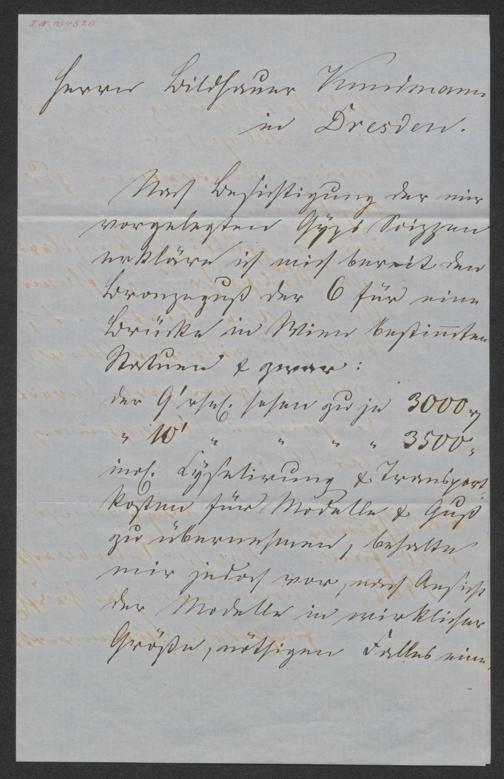 I.N. 204520
Herrn Bildhauer Kundmann
in Dresden.
Nach Besichtigung der mir
vorgelegten Gyps Scizzen
erkläre ich mich bereit den
Bronzeguß der 6 für eine
Brücke in Wien bestimmten
Statuen & zwar:
der 9' hohen zu je 3000
" 10' " " " " 3500
incl. Ciselirung & Transport
Kosten für Modelle & Guß
zu übernehmen, behalte
mir jedoch vor, nach Ansicht
der Modelle in wirklicher
Größe, nöthigen Falles eine